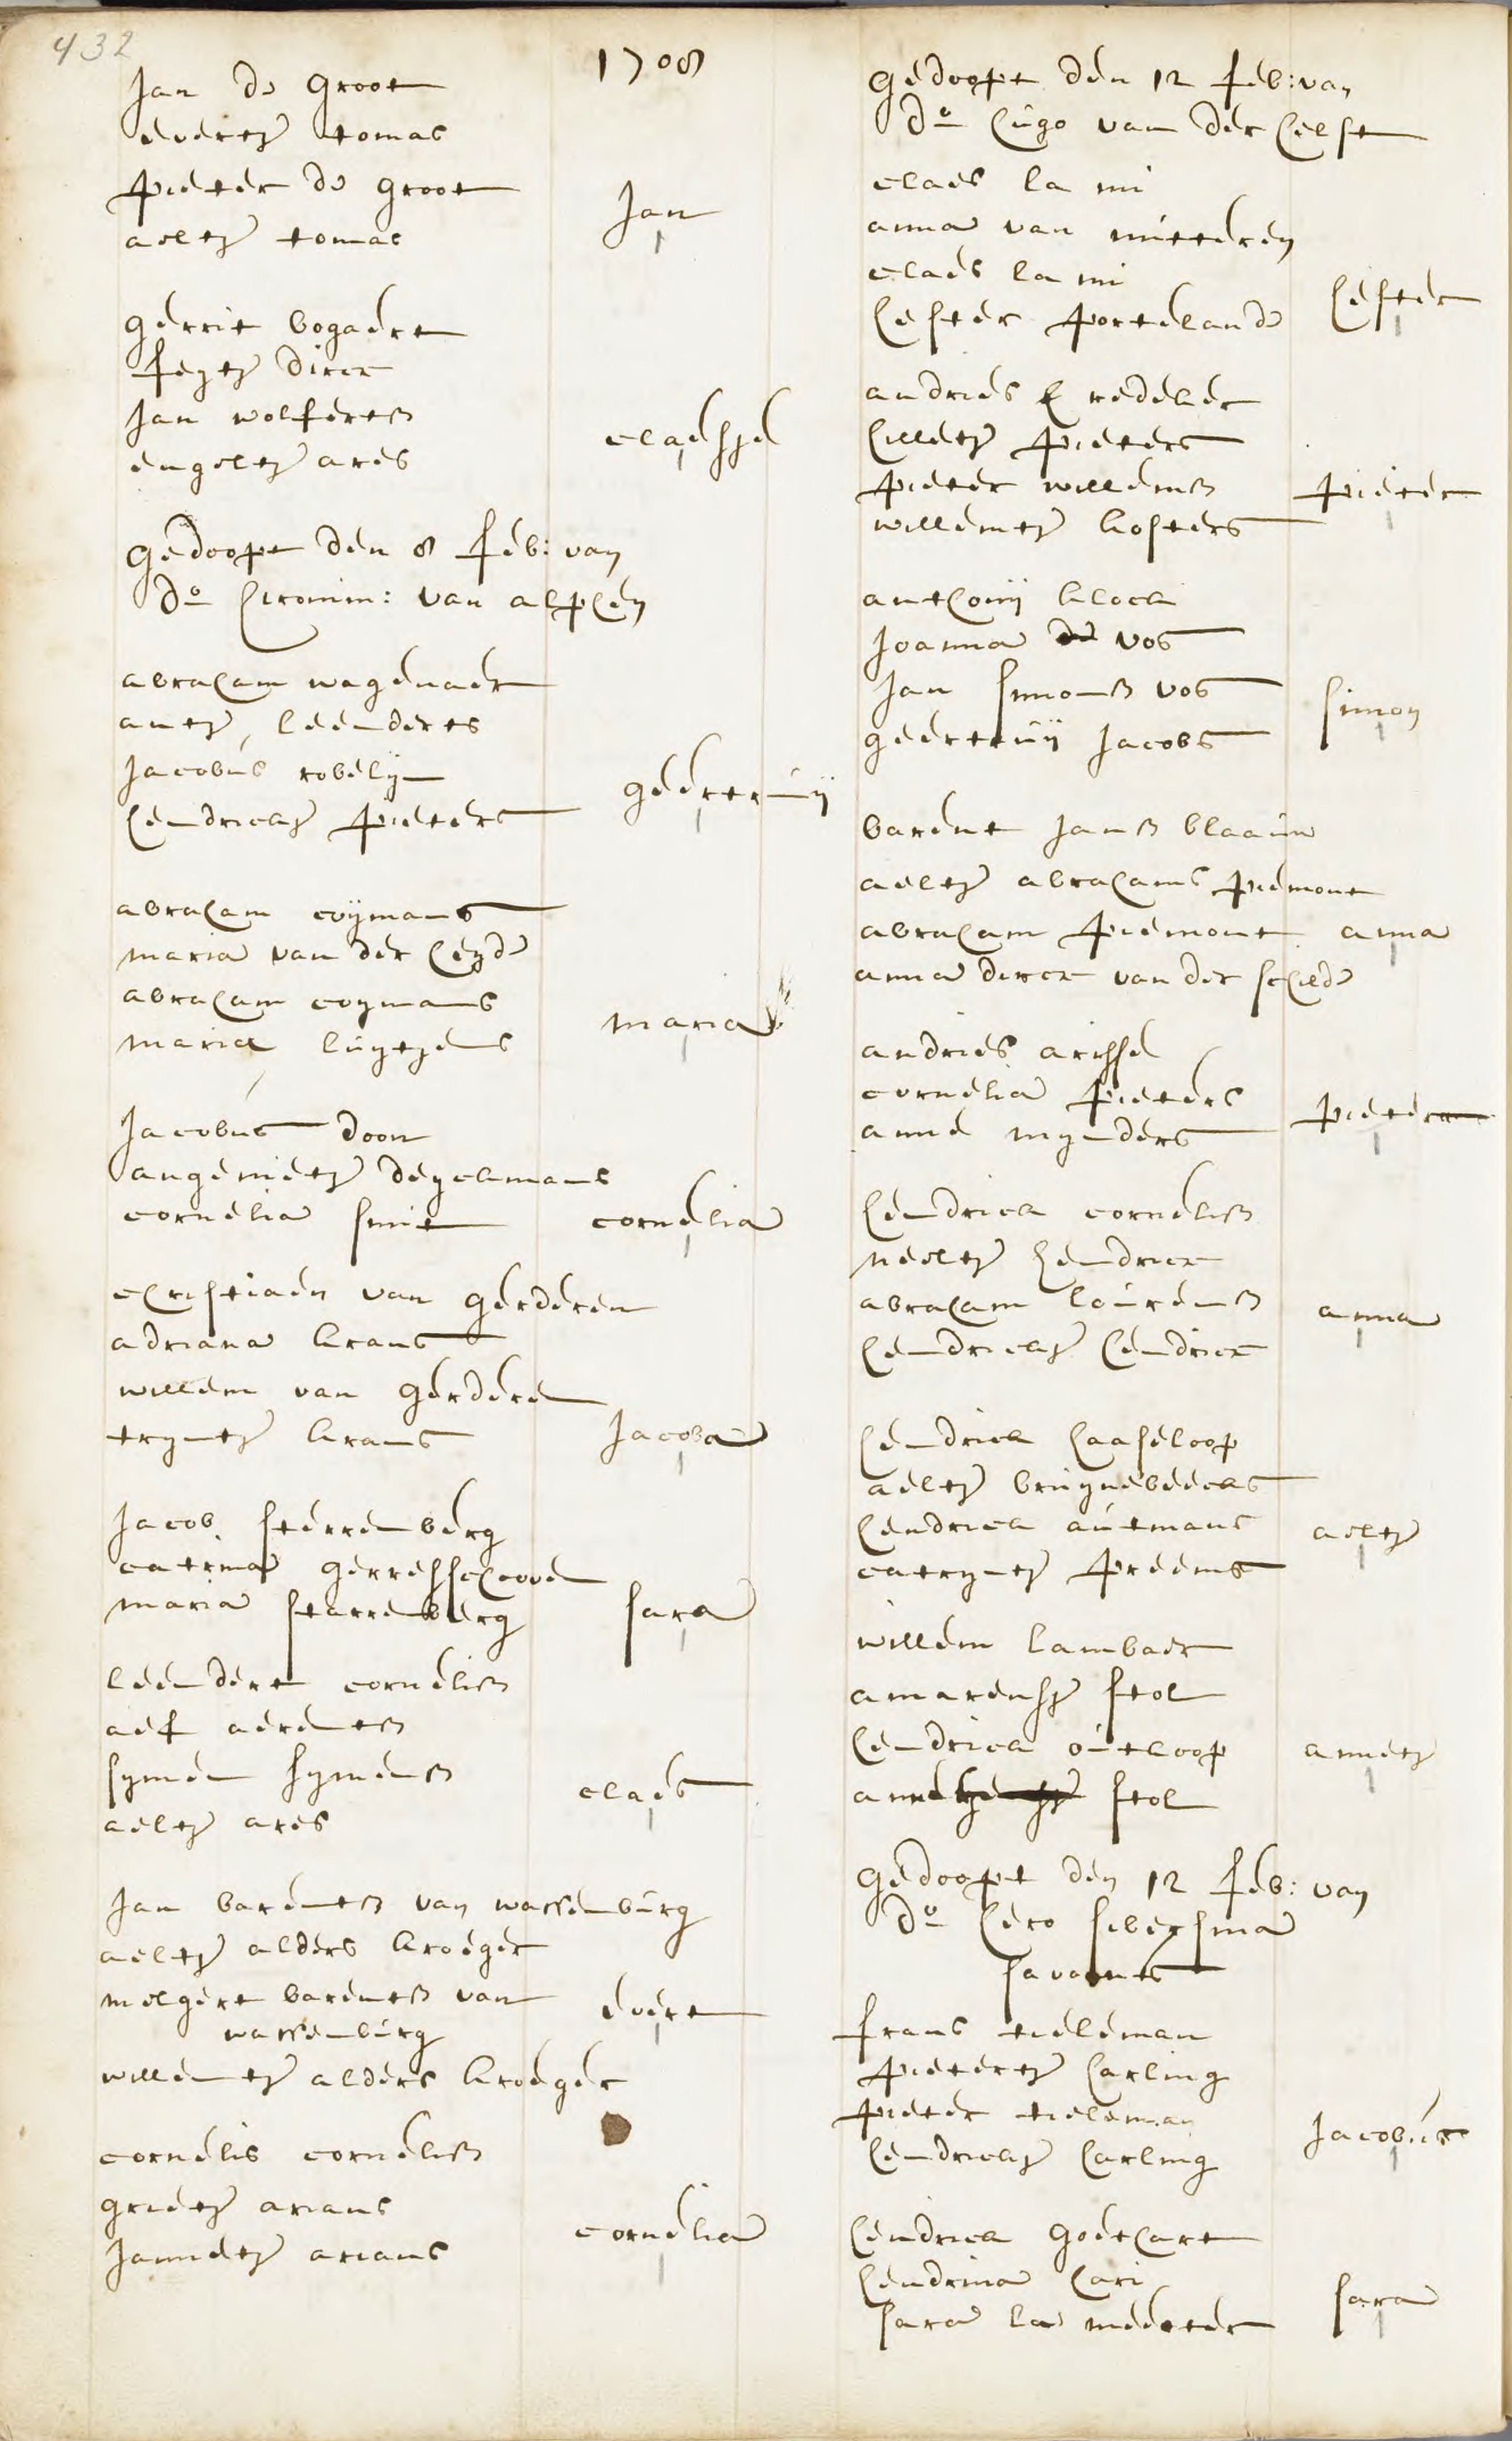 432
1708
Jan de Groot
evertie tomas
pieter de Groot
aeltie tomas
Jan
gerrit bogaert
feytie dircx
Jan wolfertss
engeltie ares
claesje
gedoopt den 8 feb: van
do hironim: van alphen
abraham wagenaer
antie leenderts
Jacobus robelyn
hendrickie pieters
geertruij
abraham coijmans
maria van der heyde
abraham coymans
maria luytjens
maria
Jacobus doorn
angenietie deyckmans
cornelia smit
cornelia
christiaen van gerderen
adriana krans
willem van gerderen
tryntie krans
Jacoba
Jacob sterrenberg
catrina gerresschooven
maria starrenberg
sara
leendert corneliss
aef aerentss
symen symenss
aeltie ares
claes
Jan barentss van wassenburg
aeltie alders kroeger
melgert barentss van
wassenburg
willemtie alders kroeger
evert
cornelis corneliss
grietie arians
Jannetie arians
cornelia
gedoopt den 12 feb: van
do hugo van der helst
claes la mi
anna van mitteren
claes la mi
hester portelande
hester
andries k redeker
hilletie pieters
pieter willemss
willemtie kosters
pieter
anthonij klock
Joanna de vos
Jan simonss vos
geertruij Jacobs
simon
barent Janss blaauw
aeltie abrahams piemont
abraham piemont
anna dircx van der schilde
anna
andries arisse
cornelia pieters
anne mynders
pieter
hendrick corneliss
neeltie hendricx
abraham lourenss
hendrickie hendricx
anna
hendrick haaseloop
aeltie bruynebeecks
hendrick autmans
catryntie preems
aeltie
willem lambaer
amarensie stol
hendrick outloop
anne stol
annetie
gedoopt den 12 feb: van
do hero sibersma
savonts
frans tieleman
pietertie harling
pieter tieleman
hendrickie harling
Jacobus
hendrick godthart
hendrina hari
sara la meerter
sara